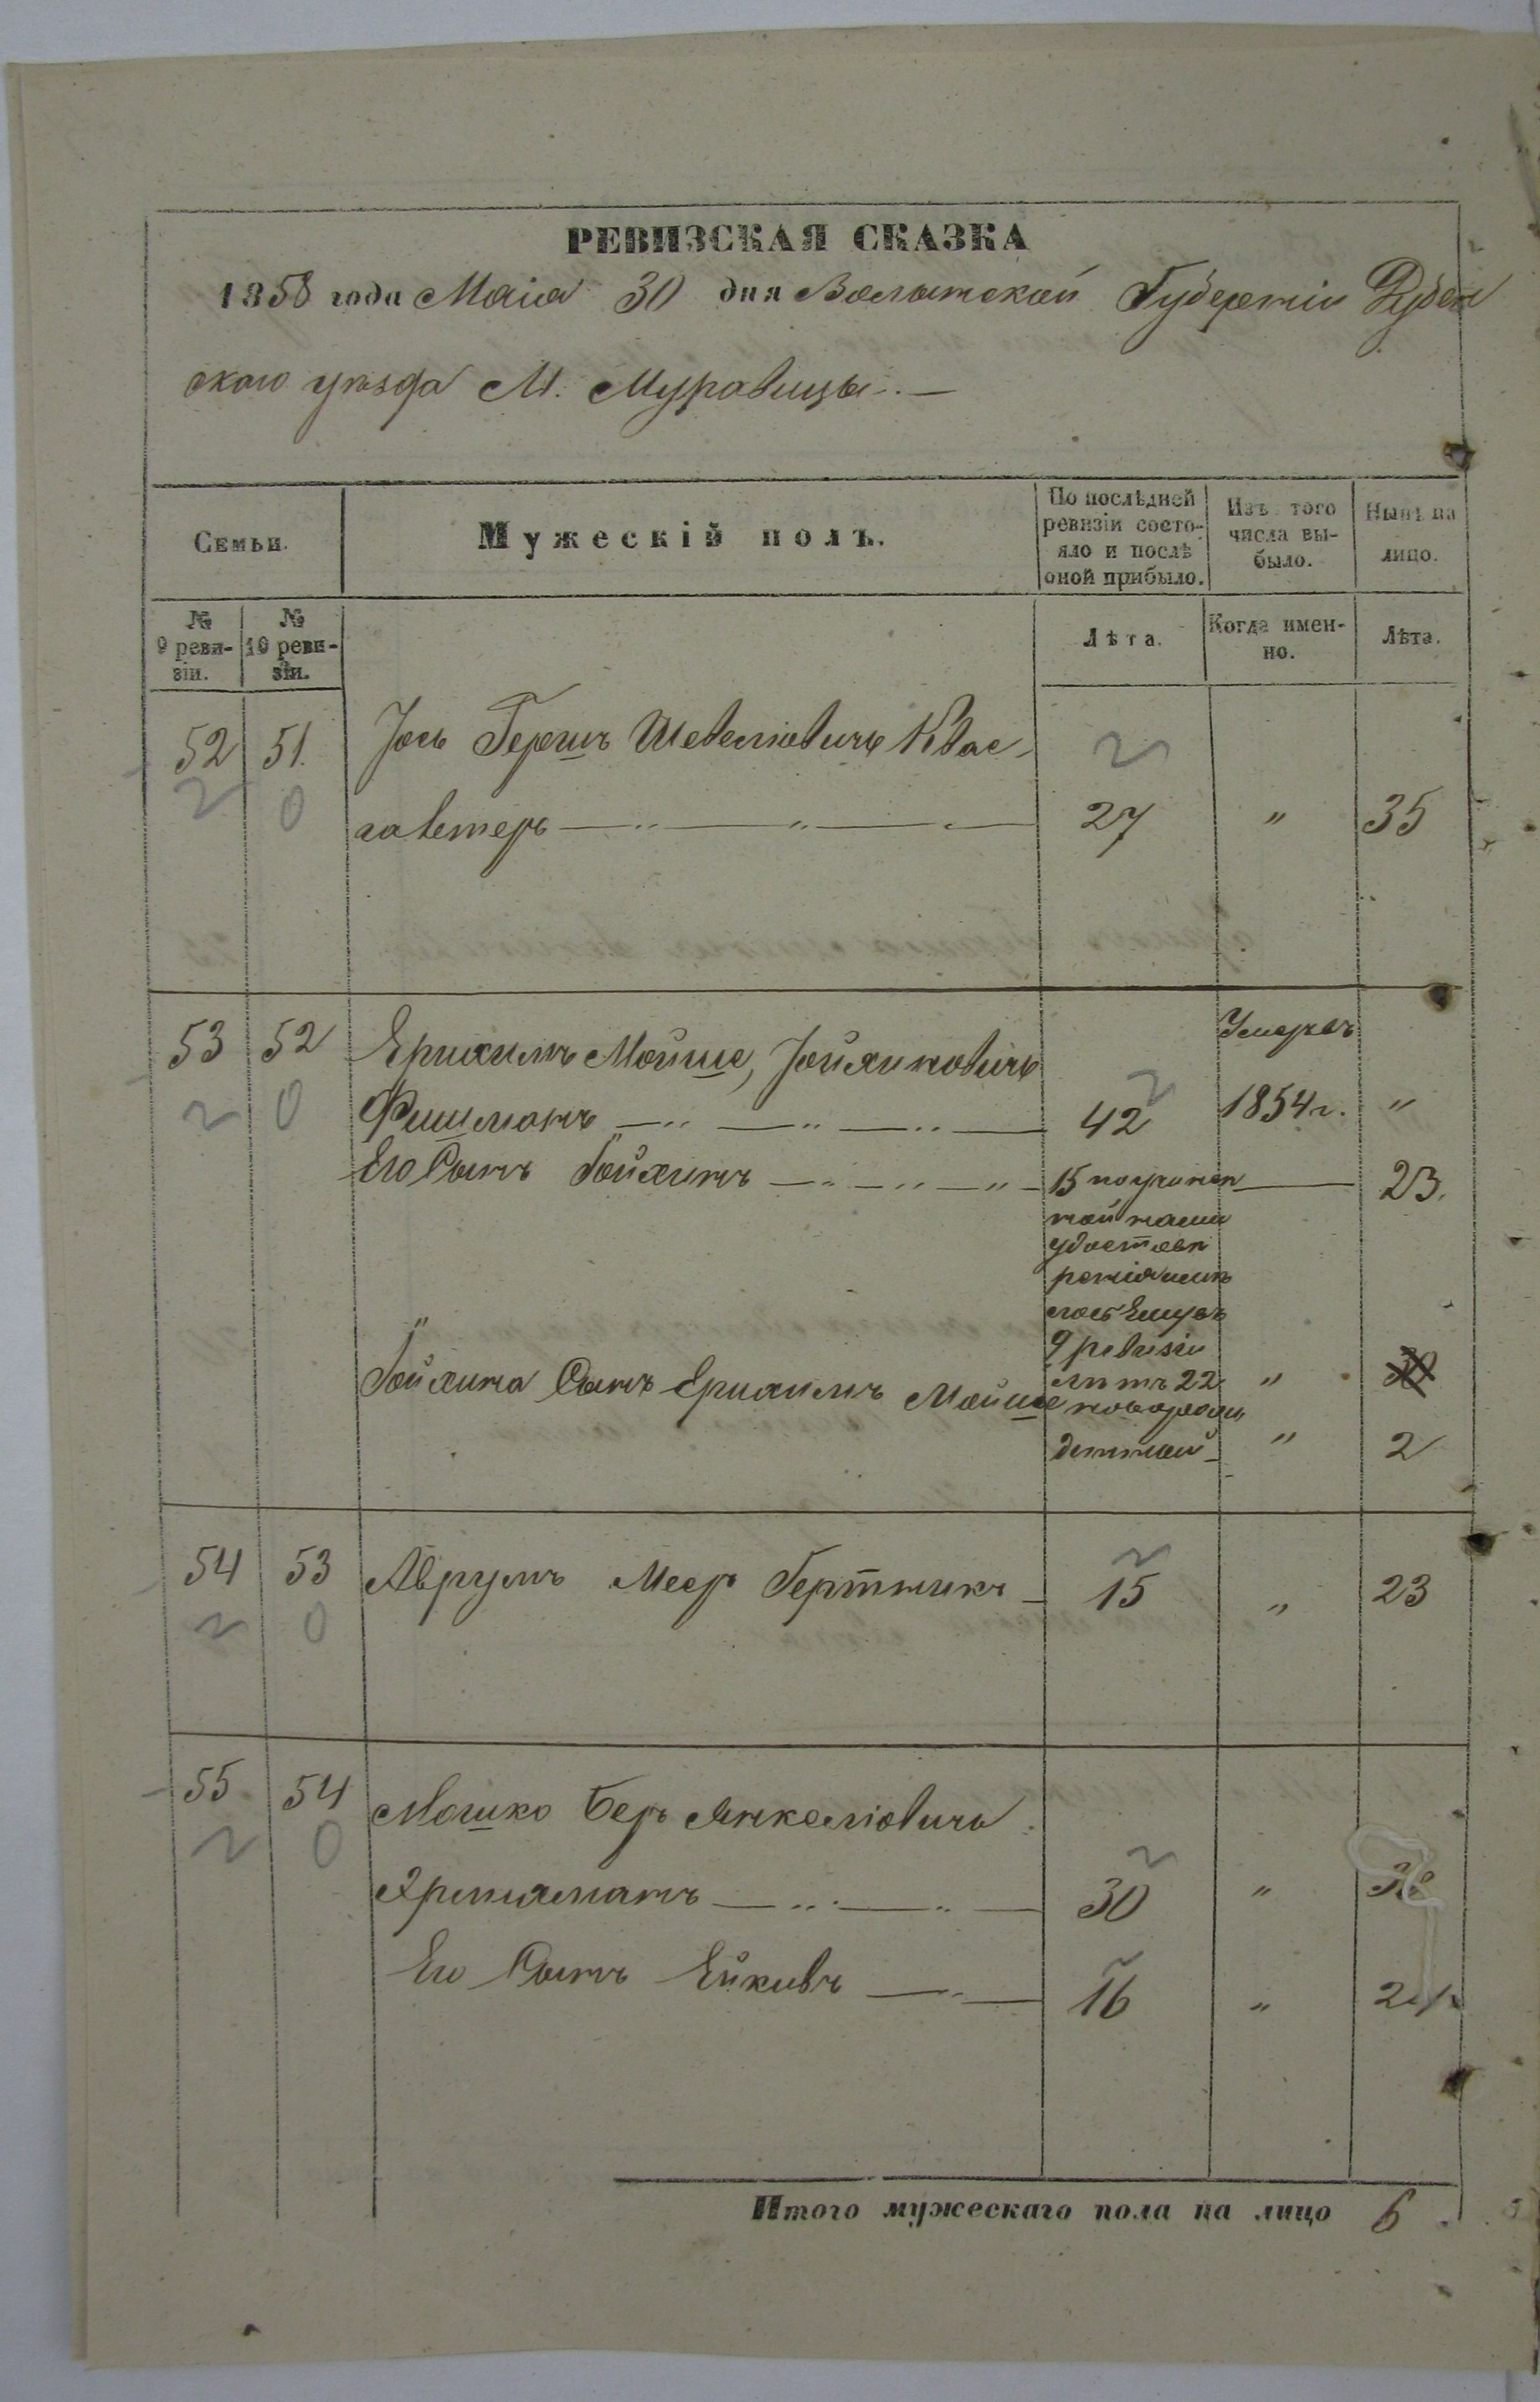 РЕВИЗСКАЯ СКАЗКА
1858 года Маія 30 дня Волынской Губерніи Дубен
скаго уѣзда М. Муравицы.—
Семьи.
Мужескій полъ.
По послѣдней ревизіи состо-
яло и послѣ оной прибыло.
Изъ того числа вы-
было.
Нынѣ на лицо.
№ 9 реви-
зіи.
№ 10 реви-
зіи.
Лѣта.
Когда имен-
но.
Лѣта.
52 51. Іось Гершъ Шевеліовичъ Квас-
гавтеръ 27 " 35
53 52 Ерихимъ Мойше, Іойхимовичъ Умеръ въ
Фишманъ 42 1854 г. "
Его Сынъ Іойхимъ 15 23.
ной нами
удостовѣ
ренія
9 ревизіи
лѣтъ 22 "
Іойхима Сынъ Ерихимъ Мойше новорож
денной " 2
54 53 Аврумъ Меер Гертникъ 15 " 23
55 54 Мошко Беръ Янкеліовичъ
30 " 38
Его Сынъ Ейкивъ 16 " 24
Итого мужескаго пола на лицо 6.